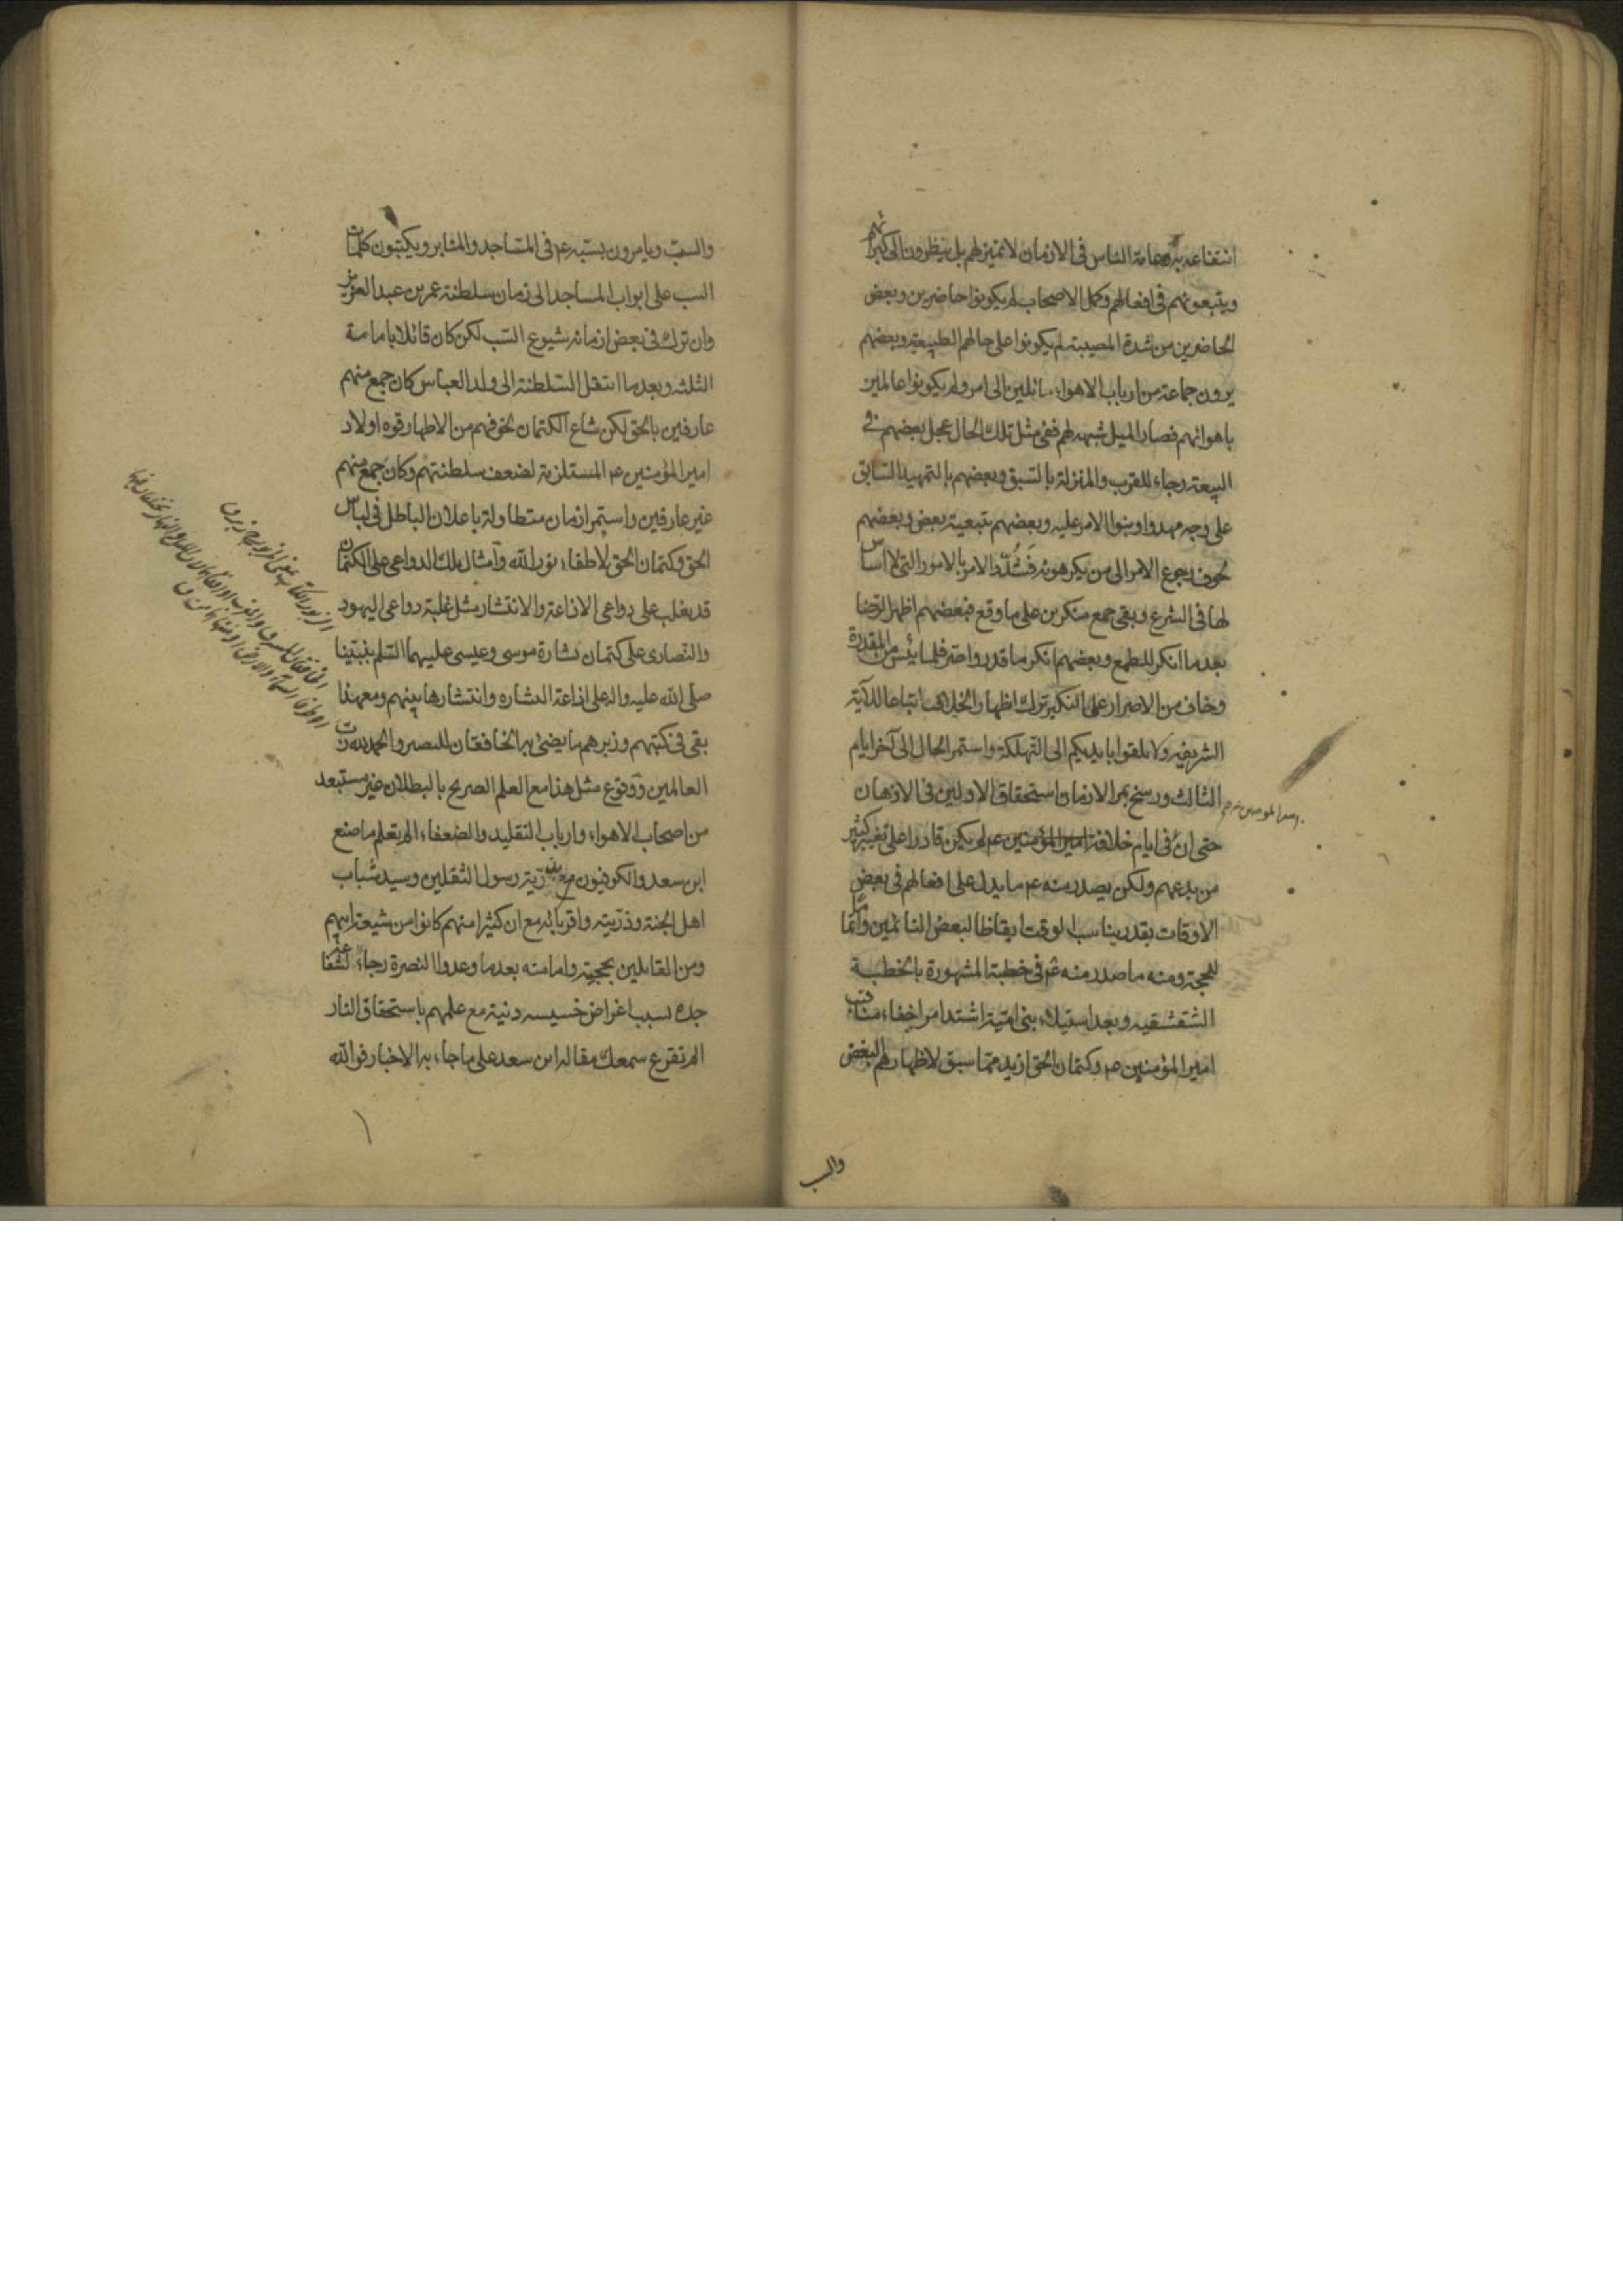 انتفاعه به وعامة الناس فى الازمان لا تميز لهم بل ينظرون الى كبرائهم
ويتبعونهم فى افعالهم وكل الاصحاب لم يكونوا حاضرين وبعض
الحاضرين من شدة المصيبة لم يكونوا على حالهم الطبيعية وبعضهم
يرون جماعة من ارباب الاهواء مائلين الى امر ولم يكونوا عالمين
باهوائهم فصار الميل شبهة لهم ففى مثل تلك الحال عجل بعضهم فى
البيعة رجاء للقرب والمنزلة بالسبق وبعضهم بالتمهيد السابق
على وجه مهدوا وبنوا الامر عليه وبعضهم بتبعية بعض وبعضهم
خوف رجوع الامر الى من يكرهونه فَشُدّد الامر بالامور التى لا اساس
لها فى الشرع وبقى جمع منكرين على ما وقع فبعضهم اظهر الرضا
بعد ما انكر للطمع وبعضهم انكر ما قدر واحترز فلما يئس من المقدرة
وخاف من الاصرار على النكير ترك اظهار الخلاف اتباعا للآية
الشريفة ولا تلقوا بايديكم الى التهلكة واستمر الحال الى آخر ايام
الثالث ورسخ بمر الازمان استحقاق الاولين فى الاذهان
حتى ان فى ايام خلافة امير المؤمنين ع م لم يكن قادرا على تغيير كثير
امير المومنين
من بدعهم ولكن يصدر منه ع م ما يدل على افعالهم فى بعض
الاوقات بقدر يناسب الوقت ايقاظا لبعض النائمين واتماما
للحجة ومنه ما صدر منه ع م فى خطبة المشهورة بالخطبة
الشقشقيه وبعد استيلاء بنى امية اشتد امر اخفاء مناقب
امير المؤمنين ع م وكتمان الحق ازيد مما سبق لاظهارهم البغض
والسب
والسب ويامرون بسبه ع م فى المساجد والمنابر ويكتبون كلمات
السب على ابواب المساجد الى زمان سلطنة عمر بن عبد العزيز
وان ترك فى بعض ازمانه شيوع السب لكن كان قائلا بامامة
الثلثه وبعد ما انتقل السلطنة الى ولد العباس كان جمع منهم
عارفين بالحق لكن شاع الكتمان لخوفهم من الاظهار قوه اولاد
امير المؤمنين ع م المستلزمة لضعف سلطنتهم وكان جمع منهم
غير عارفين واستمر ازمان متطاولة باعلان الباطل فى لباس
الحق وكتمان الحق لاطفاء نور الله وامثال تلك الدواعى على الكتمان
قد يغلب على دواعى الاذاعة والانتشار مثل غلبة دواعى اليهود
والنصارى على كتمان بشارة موسى وعيسى عليهما السلم بنبينا
صلى الله عليه واله على اذاعة البشاره وانتشارها بينهم ومع هذا
بقى فى كتبهم وزبرهم ما يضئ به الخافقان للبصير والحمد لله رب
العالمين ووقوع مثل هذا مع العلم الصريح بالبطلان غير مستبعد
من اصحاب الاهواء وارباب التقليد والضعفاء الم تعلم ما صنع
ابن سعد والكوفيون مع ذرية رسول الثقلين وسيد شباب
اهل الجنة وذريته واقربائه مع ان كثيرا منهم كانوا من شيعة ابيهم
ومن القائلين بحجيته وامامته بعد ما وعدوا النصرة رجاء لشفاعة
جده لسبب اغراض خسيسه دنية مع علمهم باستحقاق النار
الم تقرع سمعك مقاله ابن سعد على ما جاء به الاخبار فوالله